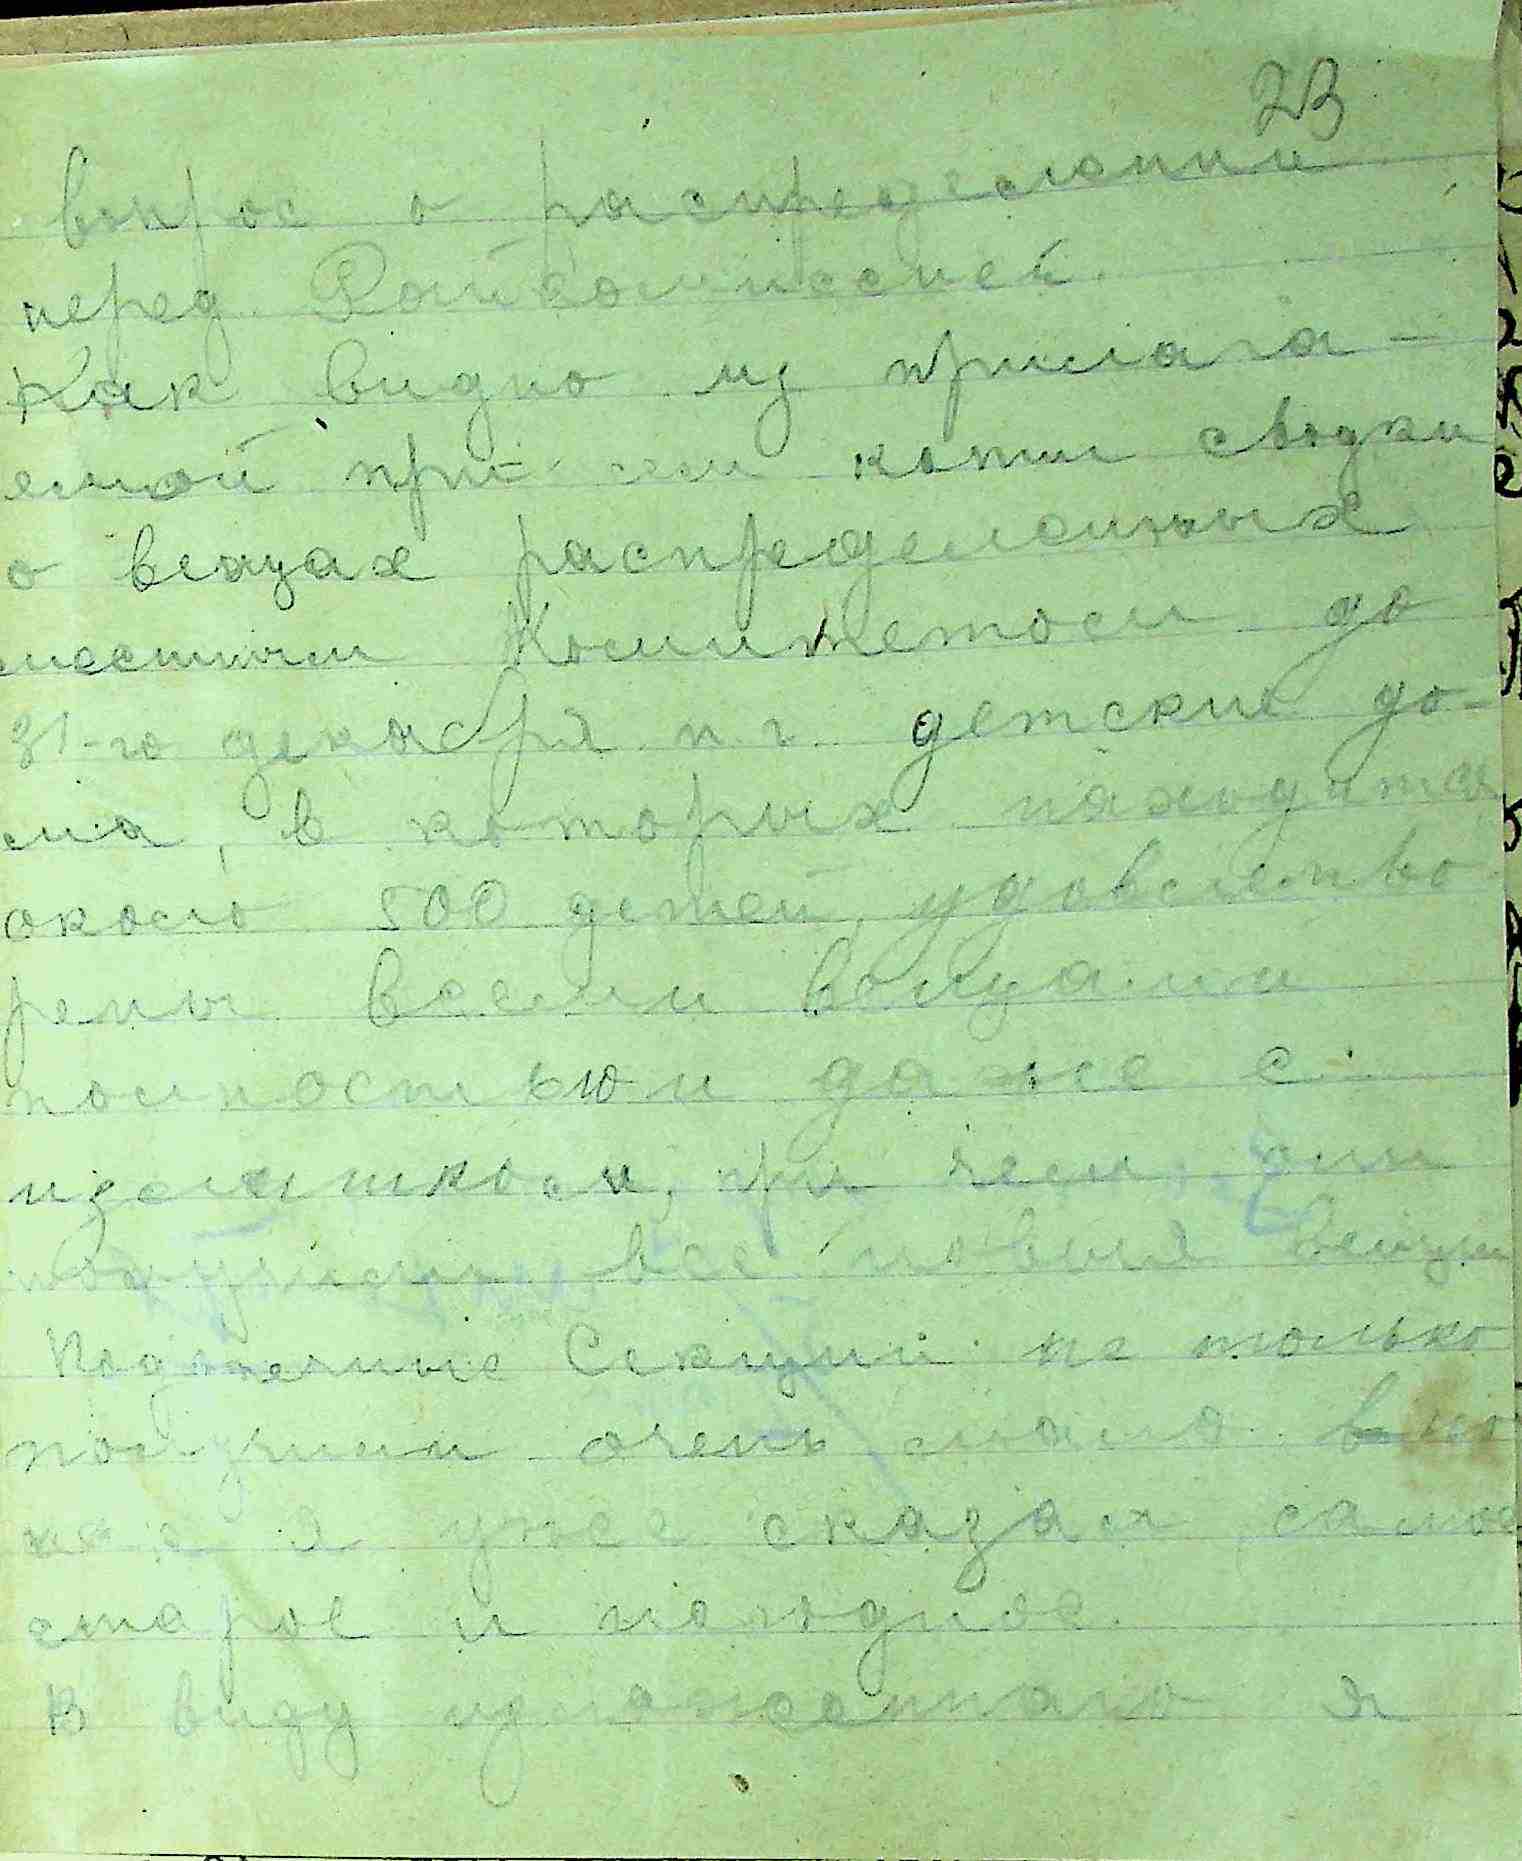 23
вопрос о распределении
перед Райкомиссией.
Как видно из прилага-
емой при сем копии сводки
о вещах распределенных
местным Комитетом до
31-го декабря п.г. детские до-
ма, в которых находится
около 500 детей, удовлетво
рены всеми вещами
полностью и даже с
излишком, при чем они
получили все новыя вещи
Подотчетные Секции не только
получили очень мало но
как я уже сказал самое
старое и негодное.
В виду изложенного я